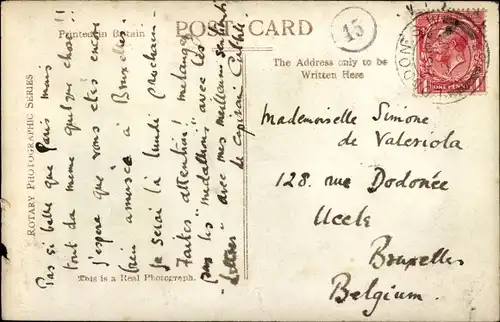 Printed in Britain
POST CARD
45
The Address only to be
Written Here
ROTARY PHOTOGRAPHIC SERIES
This is a Real Photograph.
ONE PENNY
Pas si belle que Paris mais
tout de même quelque chose!!
J'espère que vous etes encore
bien amusée à Bruxelles.
Je serai là lundi prochain -
Faites attention! mélangez
pas les "medaillons" avec les
lettres avec mes meilleurs sentiments
de capitain
Mademoiselle Simone
de Valeriola
128. rue Dodonée
Uccle
Bruxelles
Belgium.